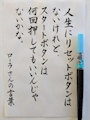 人生にリセットボタンは
ないけれど
スタートボタンは
何回押してもいいんじゃ
ないかな。
ローラさんの言葉